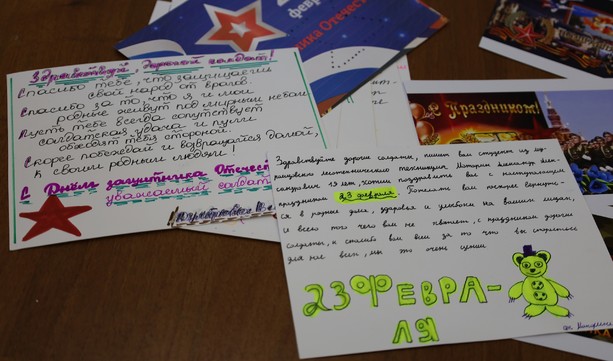 Здравствуй, дорогой солдат!
Спасибо тебе, что защищаешь
свой народ от врагов.
Спасибо за то, что я и мои
родные живут под мирным небом
Пусть тебе всегда сопутствует
солдатская удача и пули
обходят тебя стороной.
Скорее побеждай и возвращайся домой,
к своим родным людям!
С Днём защитника Отечест
уважаемый солдат
фев
ника Отечес
С Праздником!
Здравствуйте дорогие солдаты, пишет вам студент из
техникума
19 лет, хотим поздравить вас с наступающим
праздником 23 февраля. Пожелать вам скорее вернуть-
ся в родные дома, здоровья и улыбки на ваших лицах,
и всего того чего вам не хватает, с праздником дорогие
солдаты, и спасибо вам всем за то что вы стараетесь
для нас всех, мы это очень ценим
23 ФЕВРА-
ЛЯ